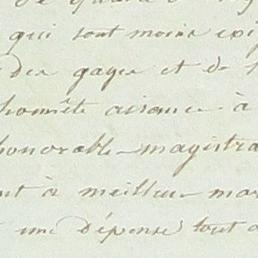 de
qui sont moins exi
des gages et de l
honnête aisance à
honorable magistra
nt à meilleur mar
une dépense tout a